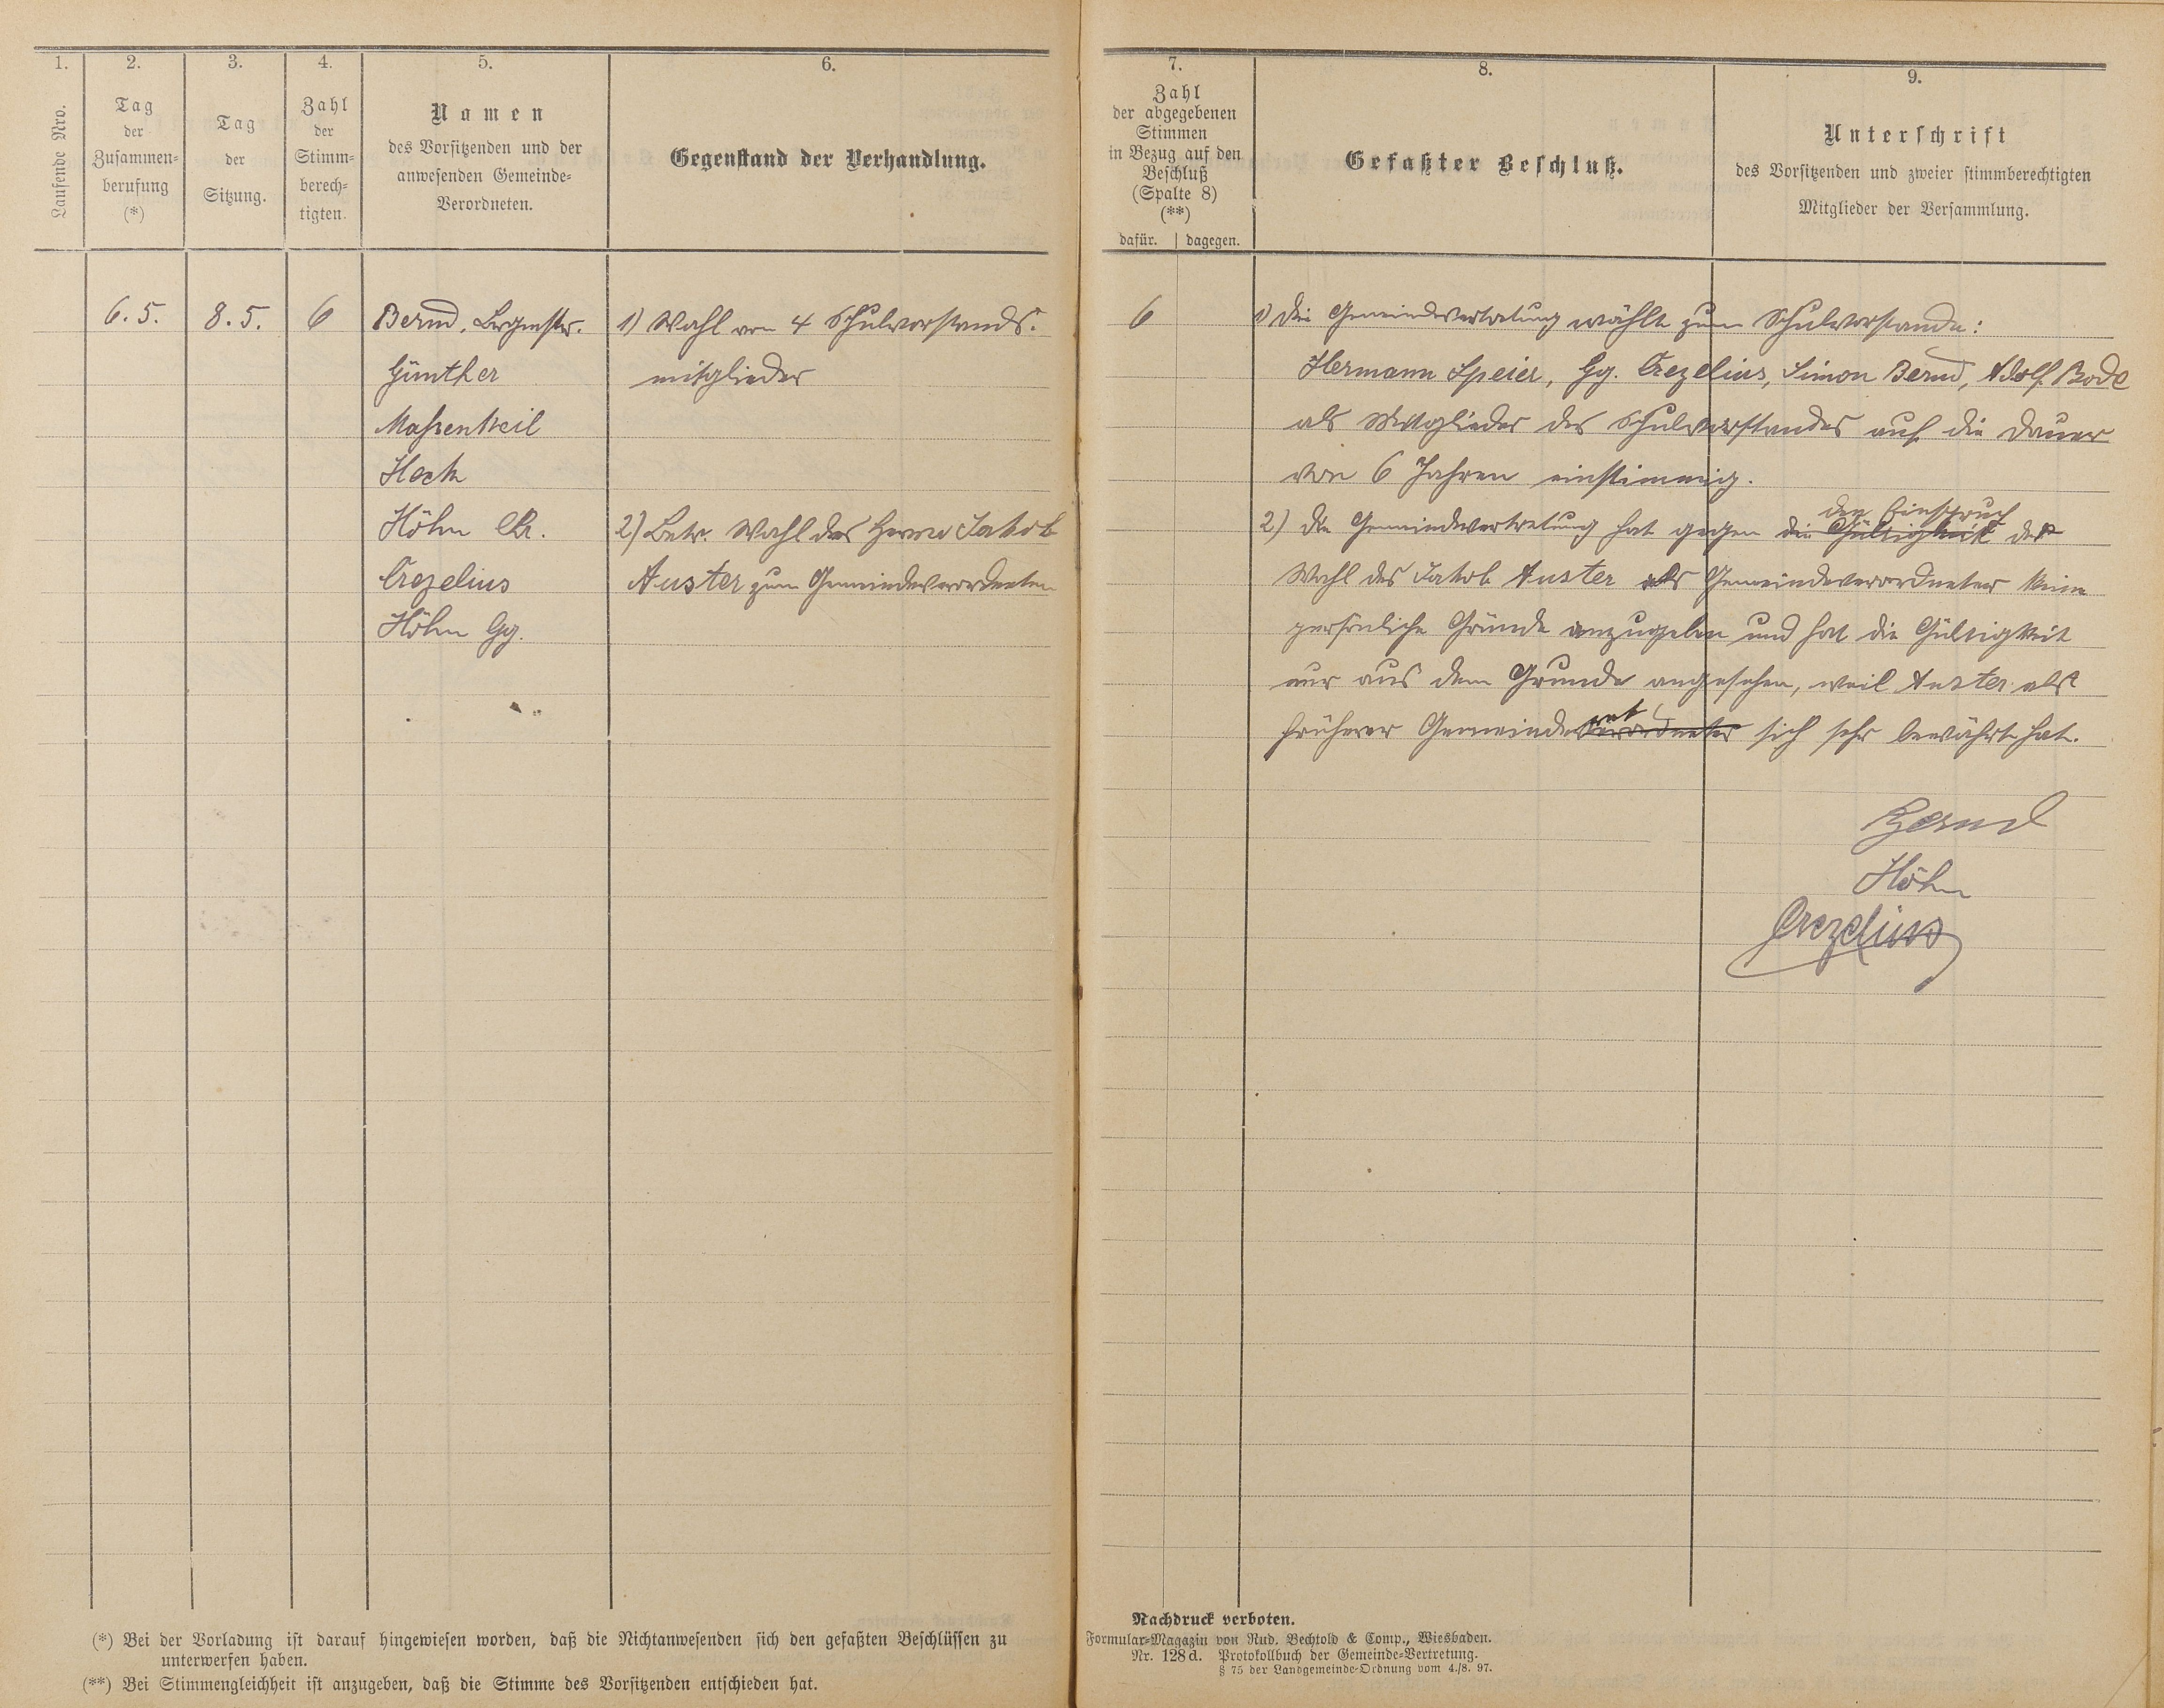 1.
Laufende Nro.
2.
Tag
der
Zusammen-
berufung
(*)
3.
Tag
der
Sitzung.
4.
Zahl
der
Stimm-
berech-
tigten.
5.
Namen
des Vorsitzenden und der
anwesenden Gemeinde-
Verordneten.
6.
Gegenstand der Verhandlung.
6. 5.
8. 5.
6
Bernd, Brgmstr.
Günther
Maßenkeil
Hock
Höhn Chr.
Crezelius
Höhn Gg.
1) Wahl von 4 Schulvorstands-
mitglieder
2) Betr. Wahl des Herrn Jakob
Auster zum Gemeindeverordneten
(*) Bei der Vorladung ist darauf hingewiesen worden, daß die Nichtanwesenden sich den gefaßten Beschlüssen zu
unterwerfen haben.
(**) Bei Stimmengleichheit ist anzugeben, daß die Stimme des Vorsitzenden entschieden hat.
7.
Zahl
der abgegebenen
Stimmen
in Bezug auf den
Beschluß
(Spalte 8)
(**)
dafür. dagegen.
8.
Gefaßter Beschluß.
9.
Unterschrift
des Vorsitzenden und zweier stimmberechtigten
Mitglieder der Versammlung.
6
1) Die Gemeindevertretung wählt zum Schulvorstande:
Hermann Speier, Gg. Crezelius, Simon Bernd, Adolf Bode
als Mitglieder des Schulvorstandes auf die Dauer
von 6 Jahren einstimmig.
den Einspruch
2) Die Gemeindevertretung hat gegen die Gültigkeit der
Wahl des Jakob Auster als Gemeindeverordneter keine
persönliche Gründe anzugeben und hat die Gültigkeit
nur aus dem Grunde angesehen, weil Auster als
rat
früherer Gemeindeverordneter sich sehr bewährt hat.
Bernd
Höhn
Crezelius
Nachdruck verboten.
Formular-Magazin von Rud. Bechtold & Comp., Wiesbaden.
Nr. 128d. Protokollbuch der Gemeinde-Vertretung.
§ 75 der Landgemeinde-Ordnung vom 4./8. 97.